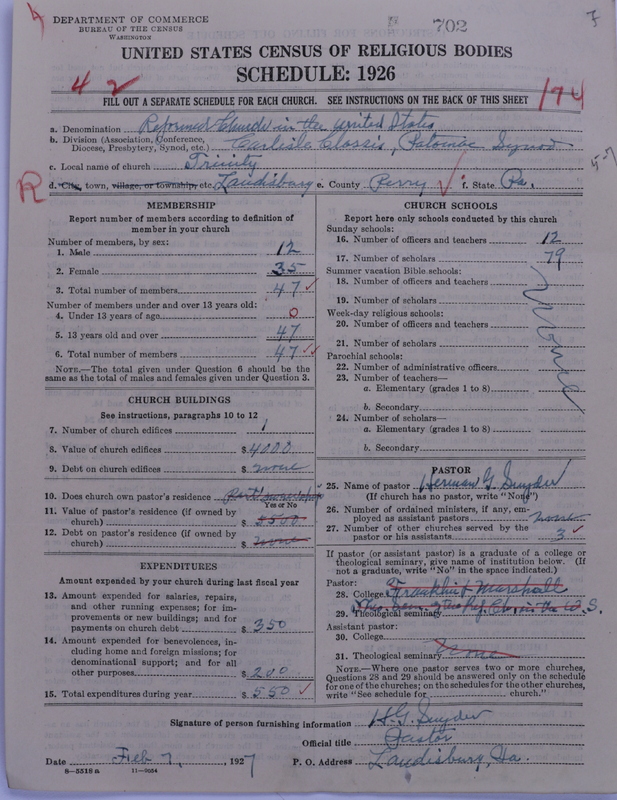 DEPARTMENT OF COMMERCE
BUREAU OF THE CENSUS
WASHINGTON
702
UNITED STATES CENSUS OF RELIGIOUS BODIES
SCHEDULE: 1926
4 2
174
FILL OUT A SEPARATE SCHEDULE FOR EACH CHURCH. SEE INSTRUCTIONS ON THE BACK OF THIS SHEET
a. Denomination Reformed Church in the United States
b. Division (Association, Conference, Diocese, Presbytery, Synod, etc.) Carlisle Classis, Potomac Synod
c. Local name of church Trinity
R
d. City, town, village, or township, etc. Landisburg e. County Perry f. State Pa.
MEMBERSHIP
Report number of members according to definition of
member in your church
Number of members, by sex:
1. Male 12
2. Female 35
3. Total number of members 47
Number of members under and over 13 years old:
4. Under 13 years of age 0
5. 13 years old and over 47
6. Total number of members 47
NOTE.—The total given under Question 6 should be the
same as the total of males and females given under Question 3.
CHURCH BUILDINGS
See instructions, paragraphs 10 to 12
7. Number of church edifices 1
8. Value of church edifices $ 4000
9. Debt on church edifices $ none
10. Does church own pastor's residence Part ownership
Yes or No
11. Value of pastor's residence (if owned by
church) $ 3500
12. Debt on pastor's residence (if owned by
church) $ none
EXPENDITURES
Amount expended by your church during last fiscal year
13. Amount expended for salaries, repairs,
and other running expenses; for im-
provements on new buildings; and for
payments on church debt $ 350
14. Amount expended for benevolences, in-
cluding home and foreign missions; for
denominational support; and for all
other purposes $ 200
15. Total expenditures during year $ 550
CHURCH SCHOOLS
Report here only schools conducted by this church
Sunday schools:
16. Number of officers and teachers 12
17. Number of scholars 79
Summer vacation Bible schools:
18. Number of officers and teachers
19. Number of scholars
Week-day religious schools:
20. Number of officers and teachers
21. Number of scholars
Parochial schools:
22. Number of administrative officers
23. Number of teachers—
a. Elementary (grades 1 to 8)
b. Secondary
24. Number of scholars—
a. Elementary (grades 1 to 8)
b. Secondary
None
PASTOR
25. Name of pastor Herman G. Snyder
(If church has no pastor, write "None")
26. Number of ordained ministers, if any, em-
ployed as assistant pastors none
27. Number of other churches served by the
pastor or his assistants 3
If pastor (or assistant pastor) is a graduate of a college or
theological seminary, give name of institution below. (If
not a graduate, write "No" in the space indicated.)
Pastor:
28. College Franklin & Marshall
29. Theological seminary Theo. Sem. of the Ref. Ch. in the U.S.
Assistant pastor:
30. College
31. Theological seminary None
NOTE.—Where one pastor serves two or more churches,
Questions 28 and 29 should be answered only on the schedule
for one of the churches; on the schedules for the other churches,
write "See schedule for church."
Signature of person furnishing information H.G. Snyder
Official title Pastor
Date Feb 7, 1927 P. O. Address Landisburg, Pa.
8-5518a 11-9054